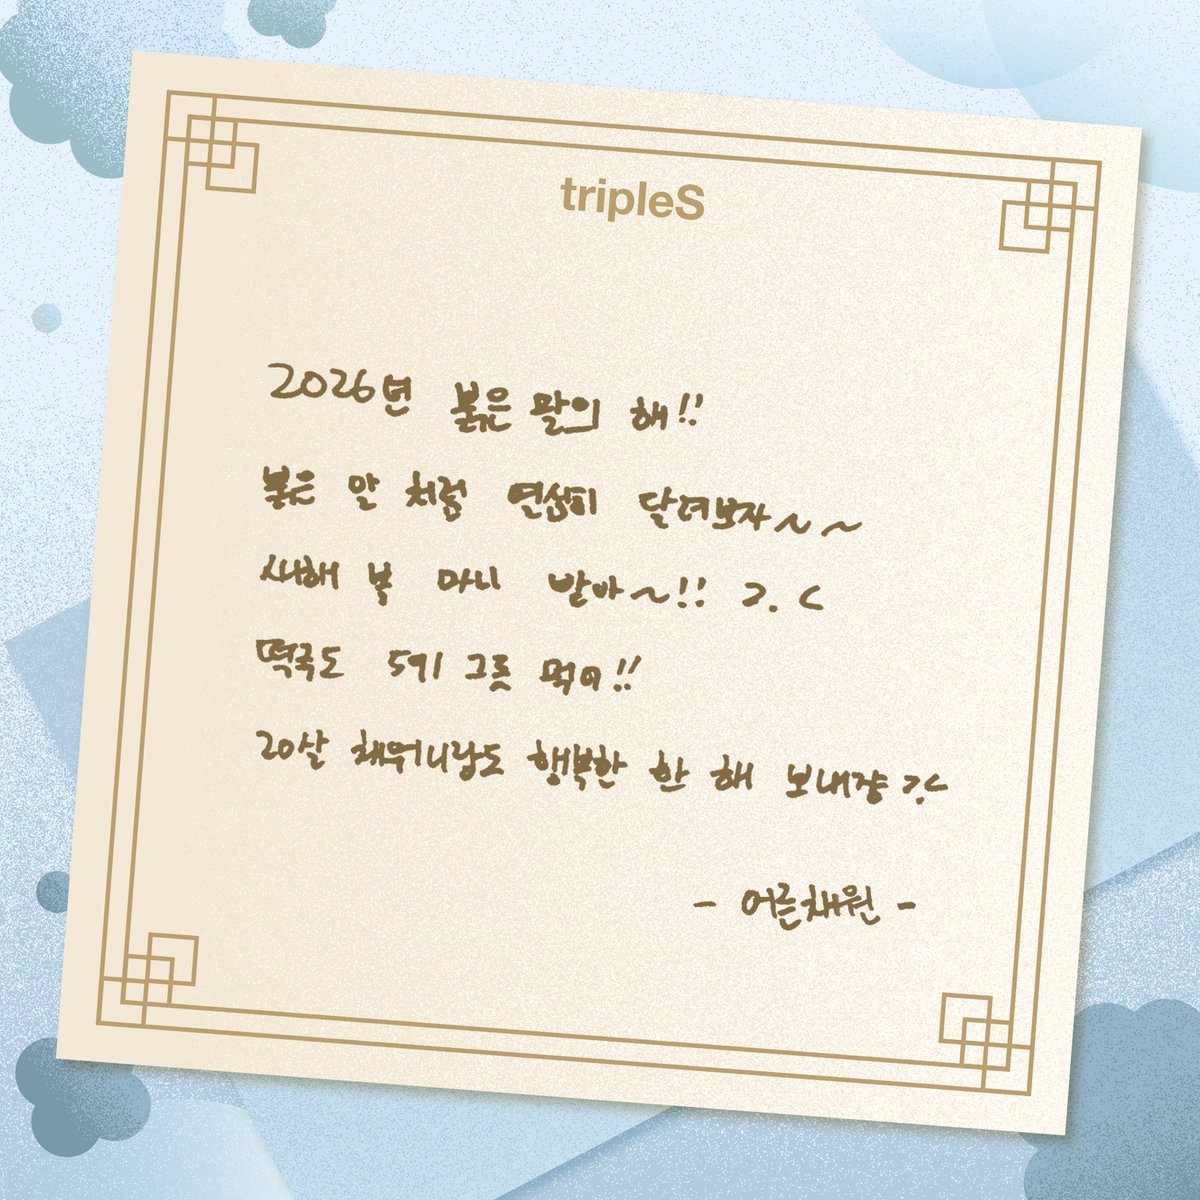 tripleS
2026년 붉은 말의 해!!
붉은 말 처럼 열심히 달려보자~~
새해 복 마니 받아~!! ㄱ.ㄷ
떡국도 5키 그릇 먹어!!
20살 채워니랑도 행복한 한 해 보내쟝 ㄱ.ㄷ
- 어른채원 -